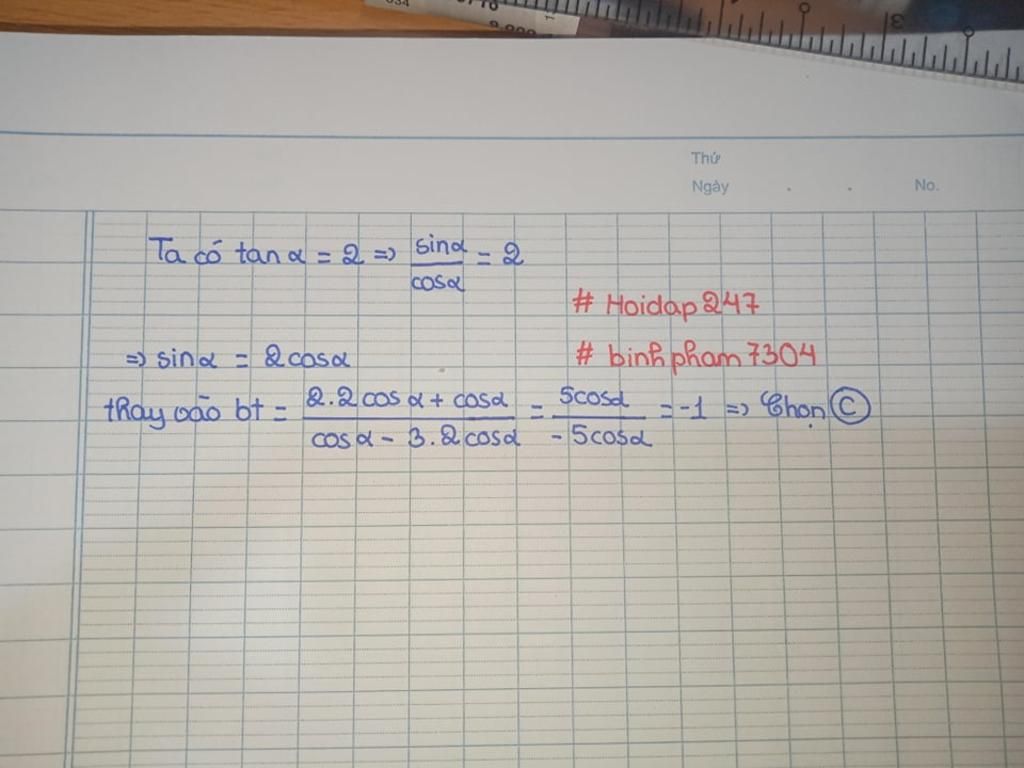 Thứ
Ngày . . No.
Ta có tan α = 2 => sinα/cosα = 2
# Hoidap247
=> sinα = 2cosα
# binhpham7304
thay vào bt = (2.2cosα + cosα)/(cosα - 3.2cosα) = 5cosα/-5cosα = -1 => Chọn Ⓒ